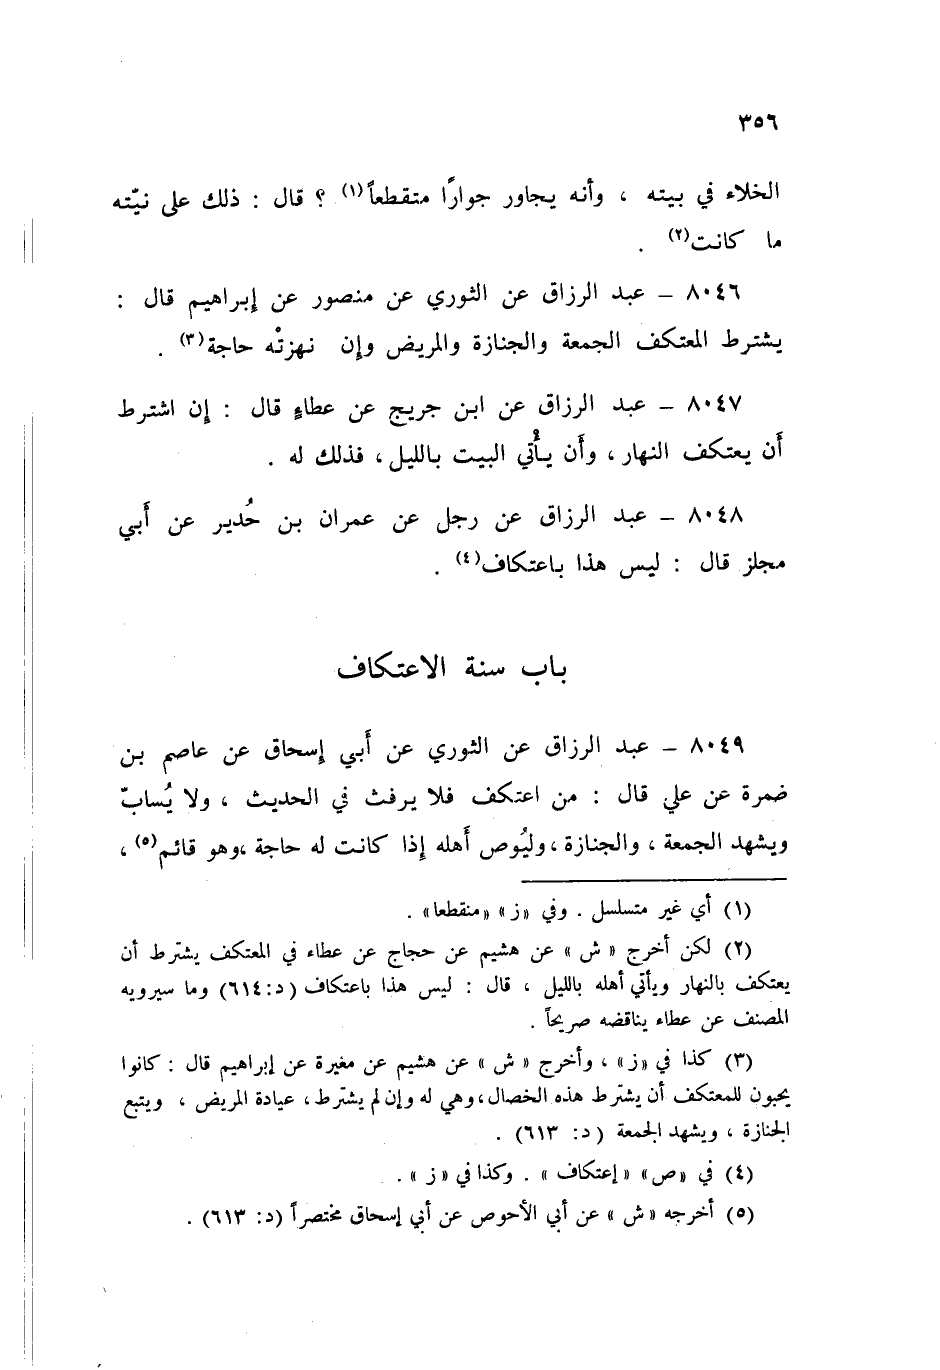 ٣٥٦
الخلاء في بيته ، وأنه يجاور جوارًا متقطعاً(١) ؟ قال : ذلك على نيّته
ما كانت(٢) .
٨٠٤٦ – عبد الرزاق عن الثوري عن منصور عن إبراهيم قال :
يشترط المعتكف الجمعة والجنازة والمريض وإن نهزتْه حاجة(٣) .
٨٠٤٧ – عبد الرزاق عن ابن جريج عن عطاءٍ قال : إن اشترط
أن يعتكف النهار ، وأن يأْتي البيت بالليل ، فذلك له .
٨٠٤٨ – عبد الرزاق عن رجل عن عمران بن حُدير عن أَبي
مجلز قال : ليس هذا باعتكاف(٤) .
باب سنة الاعتكاف
٨٠٤٩ – عبد الرزاق عن الثوري عن أَبي إسحاق عن عاصم بن
ضمرة عن علي قال : من اعتكف فلا يرفث في الحديث ، ولا يُسابّ
ويشهد الجمعة ، والجنازة ، وليُوص أَهله إذا كانت له حاجة ،وهو قائم(٥) ،
(١) أي غير متسلسل . وفي «ز» «منقطعا» .
(٢) لكن أخرج «ش» عن هشيم عن حجاج عن عطاء في المعتكف يشترط أن
يعتكف بالنهار ويأتي أهله بالليل ، قال : ليس هذا باعتكاف (د:٦١٤) وما سيرويه
المصنف عن عطاء يناقضه صريحاً .
(٣) كذا في «ز» ، وأخرج «ش» عن هشيم عن مغيرة عن إبراهيم قال : كانوا
يحبون للمعتكف أن يشترط هذه الخصال،وهي له وإن لم يشترط ، عيادة المريض ، ويتبع
الجنازة ، ويشهد الجمعة (د: ٦١٣) .
(٤) في «ص» «إعتكاف» . وكذا في «ز» .
(٥) أخرجه «ش» عن أبي الأحوص عن أبي إسحاق مختصراً (د: ٦١٣) .